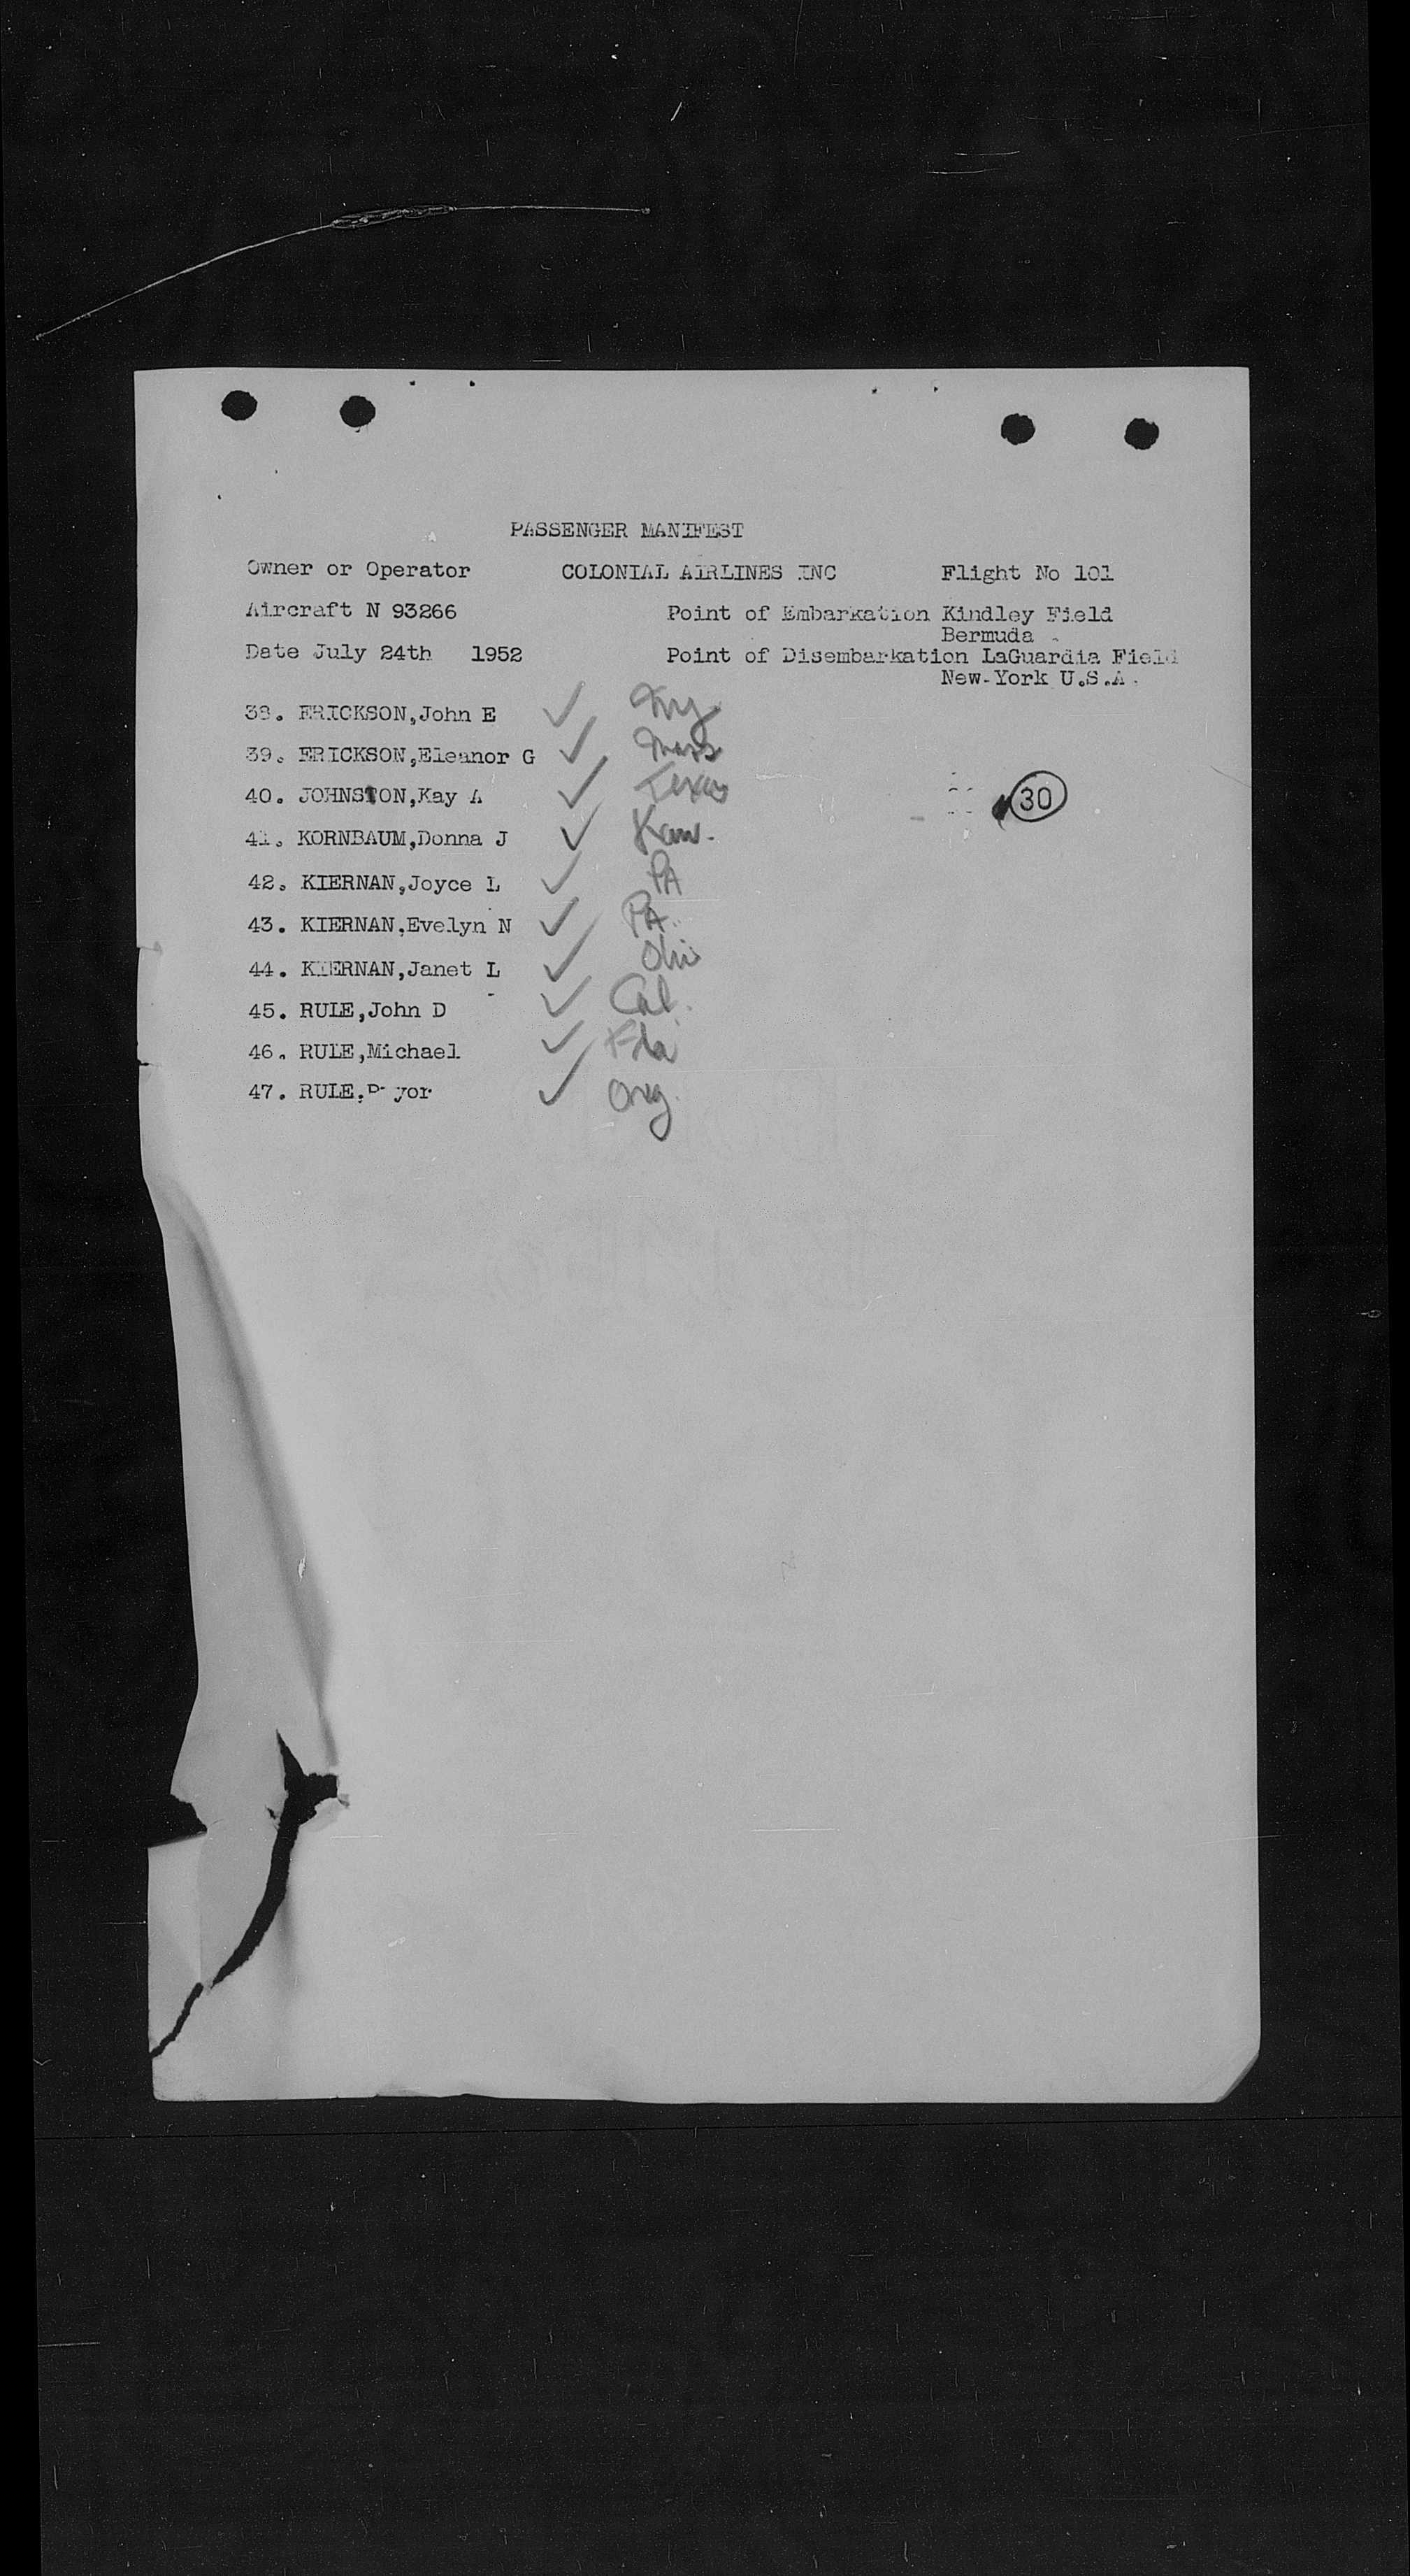 PASSENGER MANIFEST
Owner or Operator COLONIAL AIRLINES INC Flight No 101
Aircraft N 93266 Point of Embarkation Kindley Field
Bermuda
Date July 24th 1952 Point of Disembarkation LaGuardia Field
New-York U.S.A.
38. ERICKSON,John E ✓
39. ERICKSON,Eleanor G ✓ Mass
40. JOHNSTON,Kay A ✓ Texas
30
41. KORNBAUM,Donna J ✓ Kan.
42. KIERNAN,Joyce L ✓ PA
43. KIERNAN,Evelyn N ✓ PA.
44. KIERNAN,Janet L ✓ Ohio
45. RULE,John D ✓ Cal.
46. RULE,Michael ✓ Fla
47. RULE, ✓